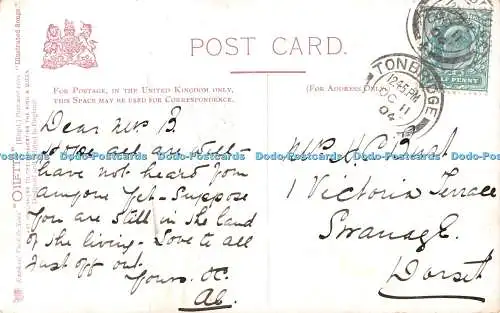 POST CARD.
FOR POSTAGE, IN THE UNITED KINGDOM ONLY,
THIS SPACE MAY BE USED FOR CORRESPONDENCE.
(FOR ADDRESS ONLY
TONBRIDGE
12.45 PM
OC 11
04
HALF PENNY
"OILETTE"
"Illustrated Songs"
Dear Mrs B.
hope all are well-
have not heard from
anyone yet - Suppose
you are still in the land
of the living - Love to all
Just off out.
Yours.
Mrs H. C. Burt
1 Victoria Terrace
Swanage.
Dorset
Postcards Dorset-Postcards Dorset-Postcards Dorset-Postcards Dorset-Postcards